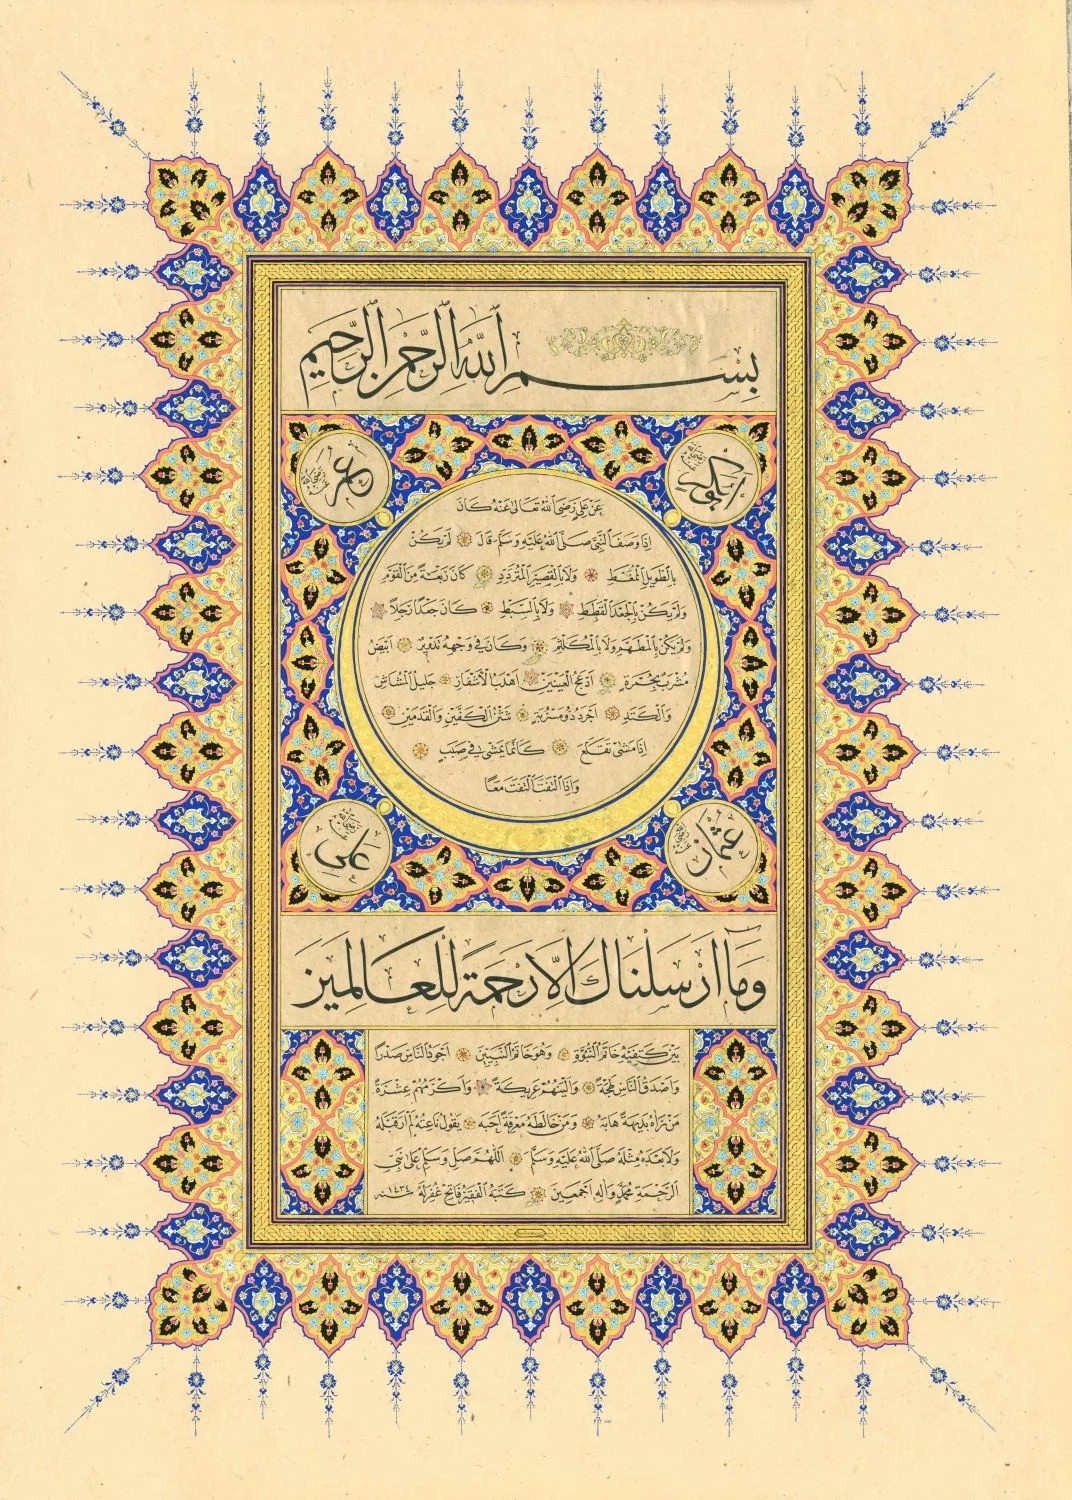 بِسْمِ اللهِ الرَّحْمٰنِ الرَّحِيمِ
ابي بكر رضي الله عنه
عمر رضي الله عنه
عَنْ عَلِيٍّ رَضِيَ اللهُ تَعَالٰى عَنْهُ كَانَ
اِذَا وَصَفَ النَّبِيَّ صَلَّى اللهُ عَلَيْهِ وَسَلَّمَ قَالَ لَمْ يَكُنْ
بِالطَّوِيلِ الْمُمَّغِطِ وَلَا بِالْقَصِيرِ الْمُتَرَدِّدِ كَانَ رَبْعَةً مِنَ الْقَوْمِ
وَلَمْ يَكُنْ بِالْجَعْدِ الْقَطَطِ وَلَا بِالسَّبِطِ كَانَ جَعْدًا رَجِلًا
وَلَمْ يَكُنْ بِالْمُطَهَّمِ وَلَا بِالْمُكَلْثَمِ وَكَانَ فِي وَجْهِهِ تَدْوِيرٌ اَبْيَضُ
مُشْرَبٌ بِحُمْرَةٍ اَدْعَجُ الْعَيْنَيْنِ اَهْدَبُ الْاَشْفَارِ جَلِيلُ الْمُشَاشِ
وَالْكَتَدِ اَجْرَدُ ذُو مَسْرُبَةٍ شَثْنُ الْكَفَّيْنِ وَالْقَدَمَيْنِ
اِذَا مَشٰى تَقَلَّعَ كَاَنَّمَا يَمْشِي فِي صَبَبٍ
وَاِذَا الْتَفَتَ الْتَفَتَ مَعًا
عثمان رضي الله عنه
علي رضي الله عنه
وَمَا اَرْسَلْنَاكَ اِلَّا رَحْمَةً لِلْعَالَمِينَ
بَيْنَ كَتِفَيْهِ خَاتَمُ النُّبُوَّةِ وَهُوَ خَاتَمُ النَّبِيِّينَ اَجْوَدُ النَّاسِ صَدْرًا
وَاَصْدَقُ النَّاسِ لَهْجَةً وَاَلْيَنُهُمْ عَرِيكَةً وَاَكْرَمُهُمْ عِشْرَةً
مَنْ رَآهُ بَدِيهَةً هَابَهُ وَمَنْ خَالَطَهُ مَعْرِفَةً اَحَبَّهُ يَقُولُ نَاعِتُهُ لَمْ اَرَ قَبْلَهُ
وَلَا بَعْدَهُ مِثْلَهُ صَلَّى اللهُ عَلَيْهِ وَسَلَّمَ اَللّٰهُمَّ صَلِّ وَسَلِّمْ عَلٰى نَبِيِّ
الرَّحْمَةِ مُحَمَّدٍ وَآلِهِ اَجْمَعِينَ كَتَبَهُ الْفَقِيرُ فَاتِحُ غُفِرَ لَهُ